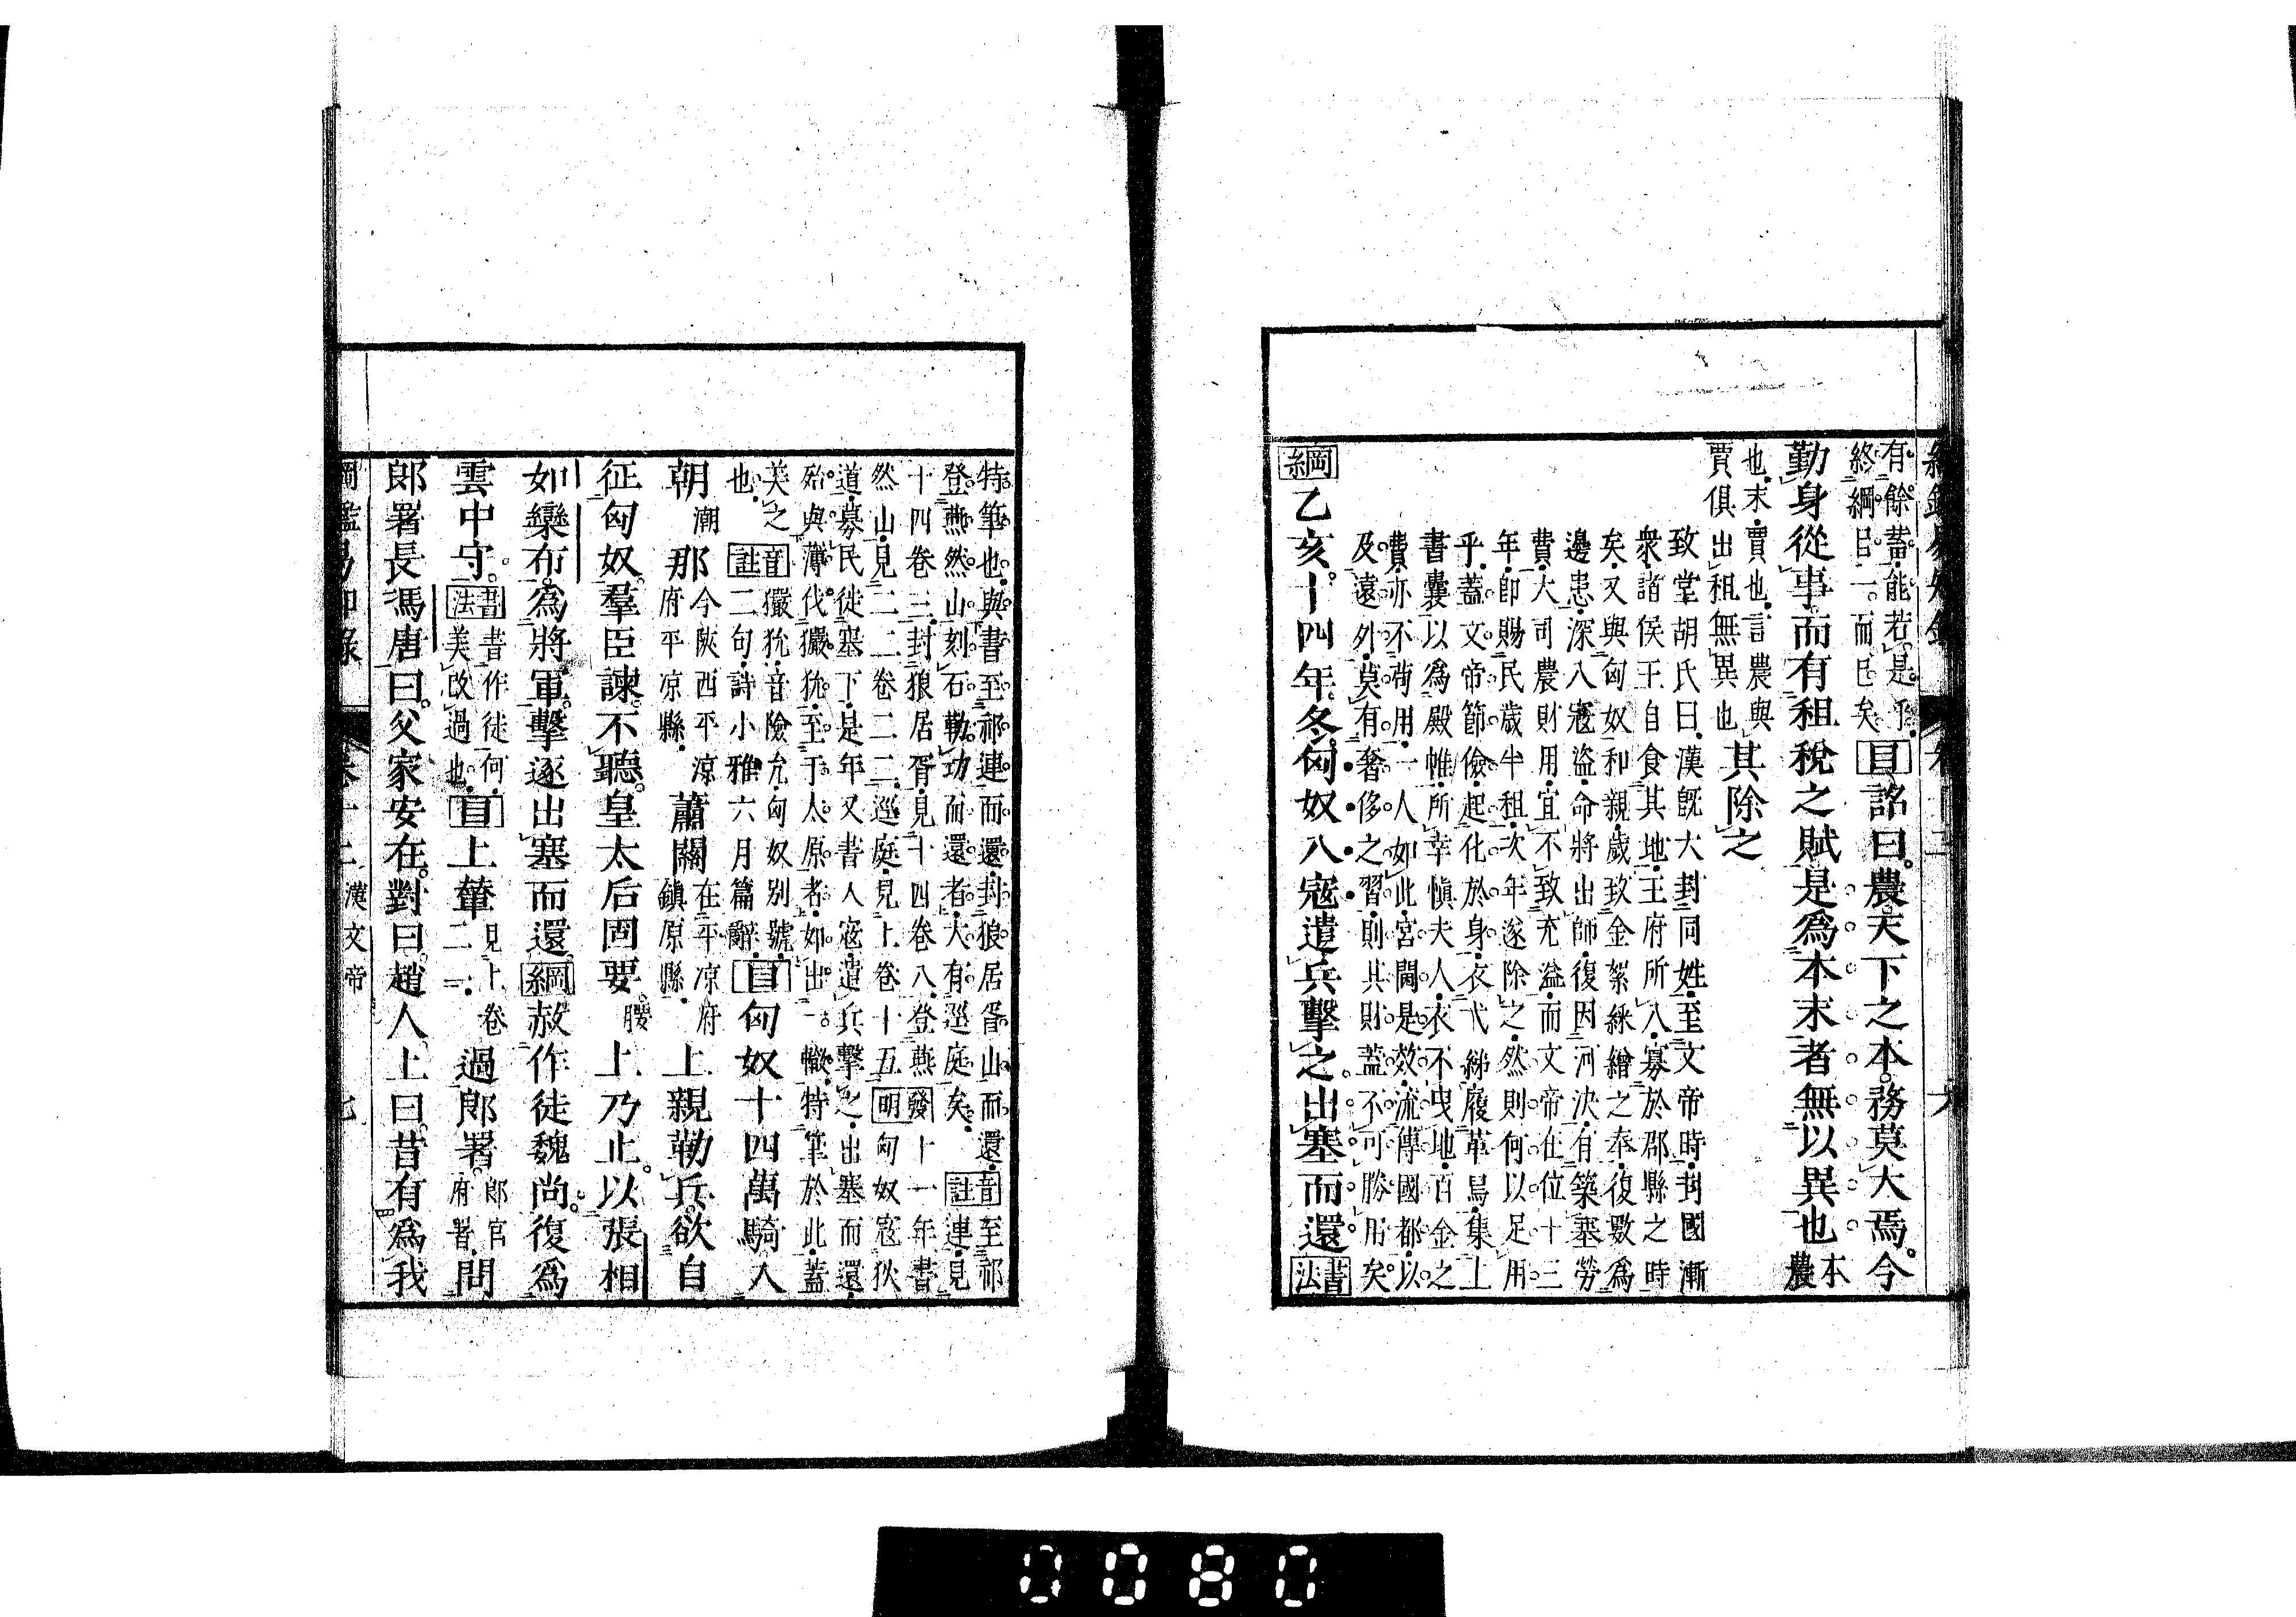 有餘蓄能若是乎
終綱目一而已矣目詔曰農天下之本務莫大焉今
勤身從事而有租稅之賦是爲本末者無以異也本農
也末賈也言農與
賈俱出租無異也其除之
致堂胡氏曰漢旣大封同姓至文帝時封國漸
衆諸侯王自食其地王府所入寡於郡縣之時
矣又與匈奴和親歲致金絮綵繒之奉復數爲
邊患深入寇盜命將出師復因河決有築塞勞
費大司農財用宜不致充溢而文帝在位十三
年卽賜民歲半租次年遂除之然則何以足用
乎蓋文帝節儉起化於身衣弋綈履革舃集上
書囊以爲殿帷所幸愼夫人衣不曳地百金之
費亦不苟用一人如此宮閫是效流傳國都以
及遠外莫有奢侈之習則其財蓋不可勝用矣
綱乙亥十四年冬匈奴入寇遣兵擊之出塞而還書法
特筆也與書至祁連而還封狼居胥山而還
登燕然山刻石勒功而還者大有逕庭矣音註至祁連見
十四卷三封狼居胥見十四卷八登燕
然山見二二卷二二逕庭見上卷十五發明十一年書匈奴寇狄
道募民徙塞下是年又書入寇遣兵擊之出塞而還
殆與薄伐玁狁至于太原者如出一轍特筆於此蓋
美之
也音註玁狁音險允匈奴別號
二句詩小雅六月篇辭目匈奴十四萬騎入
朝潮那今陝西平涼
府平凉縣蕭關在平凉府
鎮原縣上親勒兵欲自
征匈奴羣臣諫不聽皇太后固要腰上乃止以張相
如欒布爲將軍擊逐出塞而還綱赦作徒魏尚復爲
雲中守書法書作徒何
美改過也目上輦見上卷
二一過郎署郎官
府署問
郎署長馮唐曰父家安在對曰趙人上曰昔有爲我
漢文帝